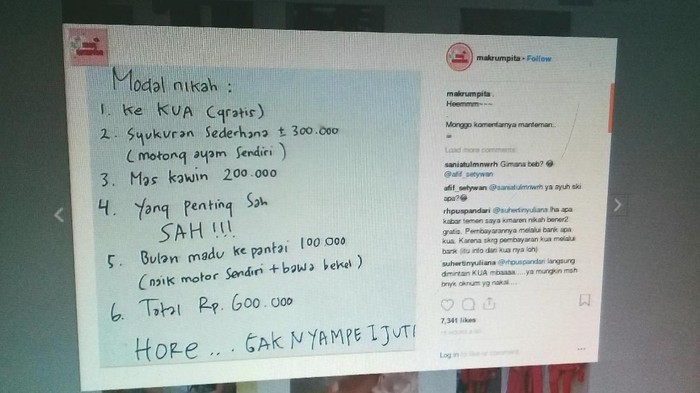 makrumpita • Follow
Modal nikah :
1. Ke KUA (gratis)
2. Syukuran Sederhana ± 300.000
(motong ayam sendiri)
3. Mas kawin 200.000
4. Yang penting Sah
SAH !!!
5. Bulan madu ke pantai 100.000
(naik motor sendiri + bawa bekel)
6. Total Rp. 600.000
HORE ... GAK NYAMPE 1 JUTA
makrumpita .
Heemmm~~~
.
Monggo komentarnya manteman..
Load more comments
saniatulmnwrh Gimana beb? 😂
@afif_setywan
afif_setywan @saniatulmnwrh ya ayuh ski
apa?😂
rhpuspandari @suhertinyuliana lha apa
kabar temen saya kmaren nikah bener2
gratis. Pembayarannya melalui bank apa
kua. Karena skrg pembayaran kua melalui
bank (itu info dari kua nya loh)
suhertinyuliana @rhpuspandari langsung
dimintain KUA mbaaaa....ya mungkin msh
bnyk oknum yg nakal....
7,341 likes
Log in to like or comment.